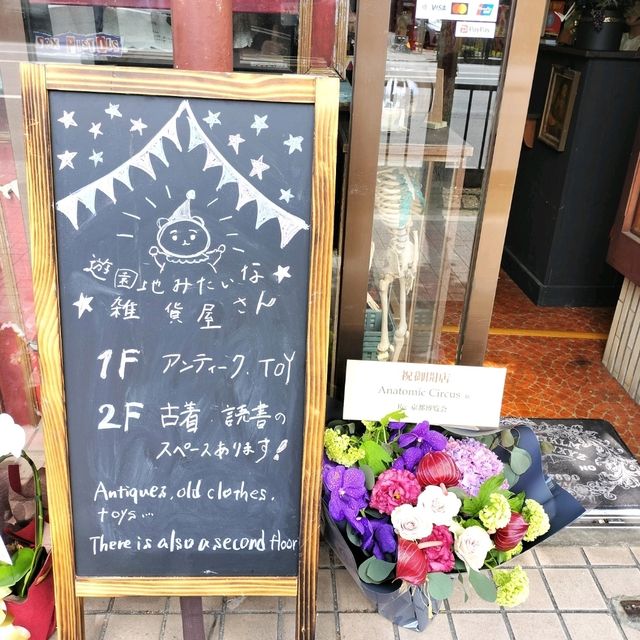 VISA
PayPay
遊園地みたいな
雑貨屋さん
1F アンティーク. TOY
2F 古着. 読書の
スペースあります!
Antiques, old clothes,
toys...
There is also a second floor
祝御開店
Anatomic Circus 様
京都博覧会